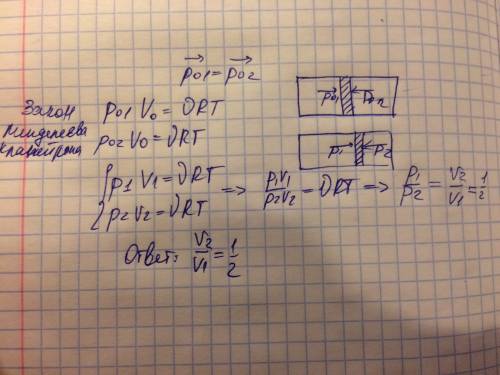 p₀₁ = p₀₂
Закон
Менделеева
Клапейрона
p₀₁ V₀ = νRT
p₀₂ V₀ = νRT
p₀₁ p₀₂
p₁ p₂
{ p₁ V₁ = νRT
{ p₂ V₂ = νRT
=> p₁V₁/p₂V₂ = νRT => p₁/p₂ = V₂/V₁ = 1/2
Ответ: V₂/V₁ = 1/2